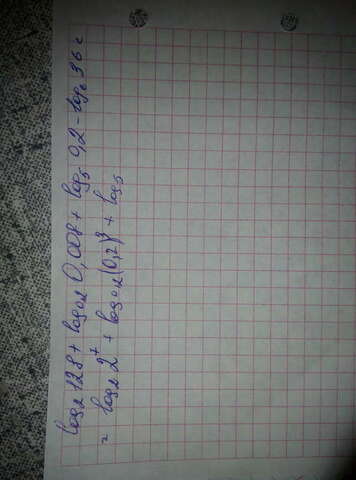 log₂128 + log₀,₂ 0,008 + log₅ 0,2 - log₆ 36 =
= log₂ 2⁷ + log₀,₂ (0,2)³ + log₅